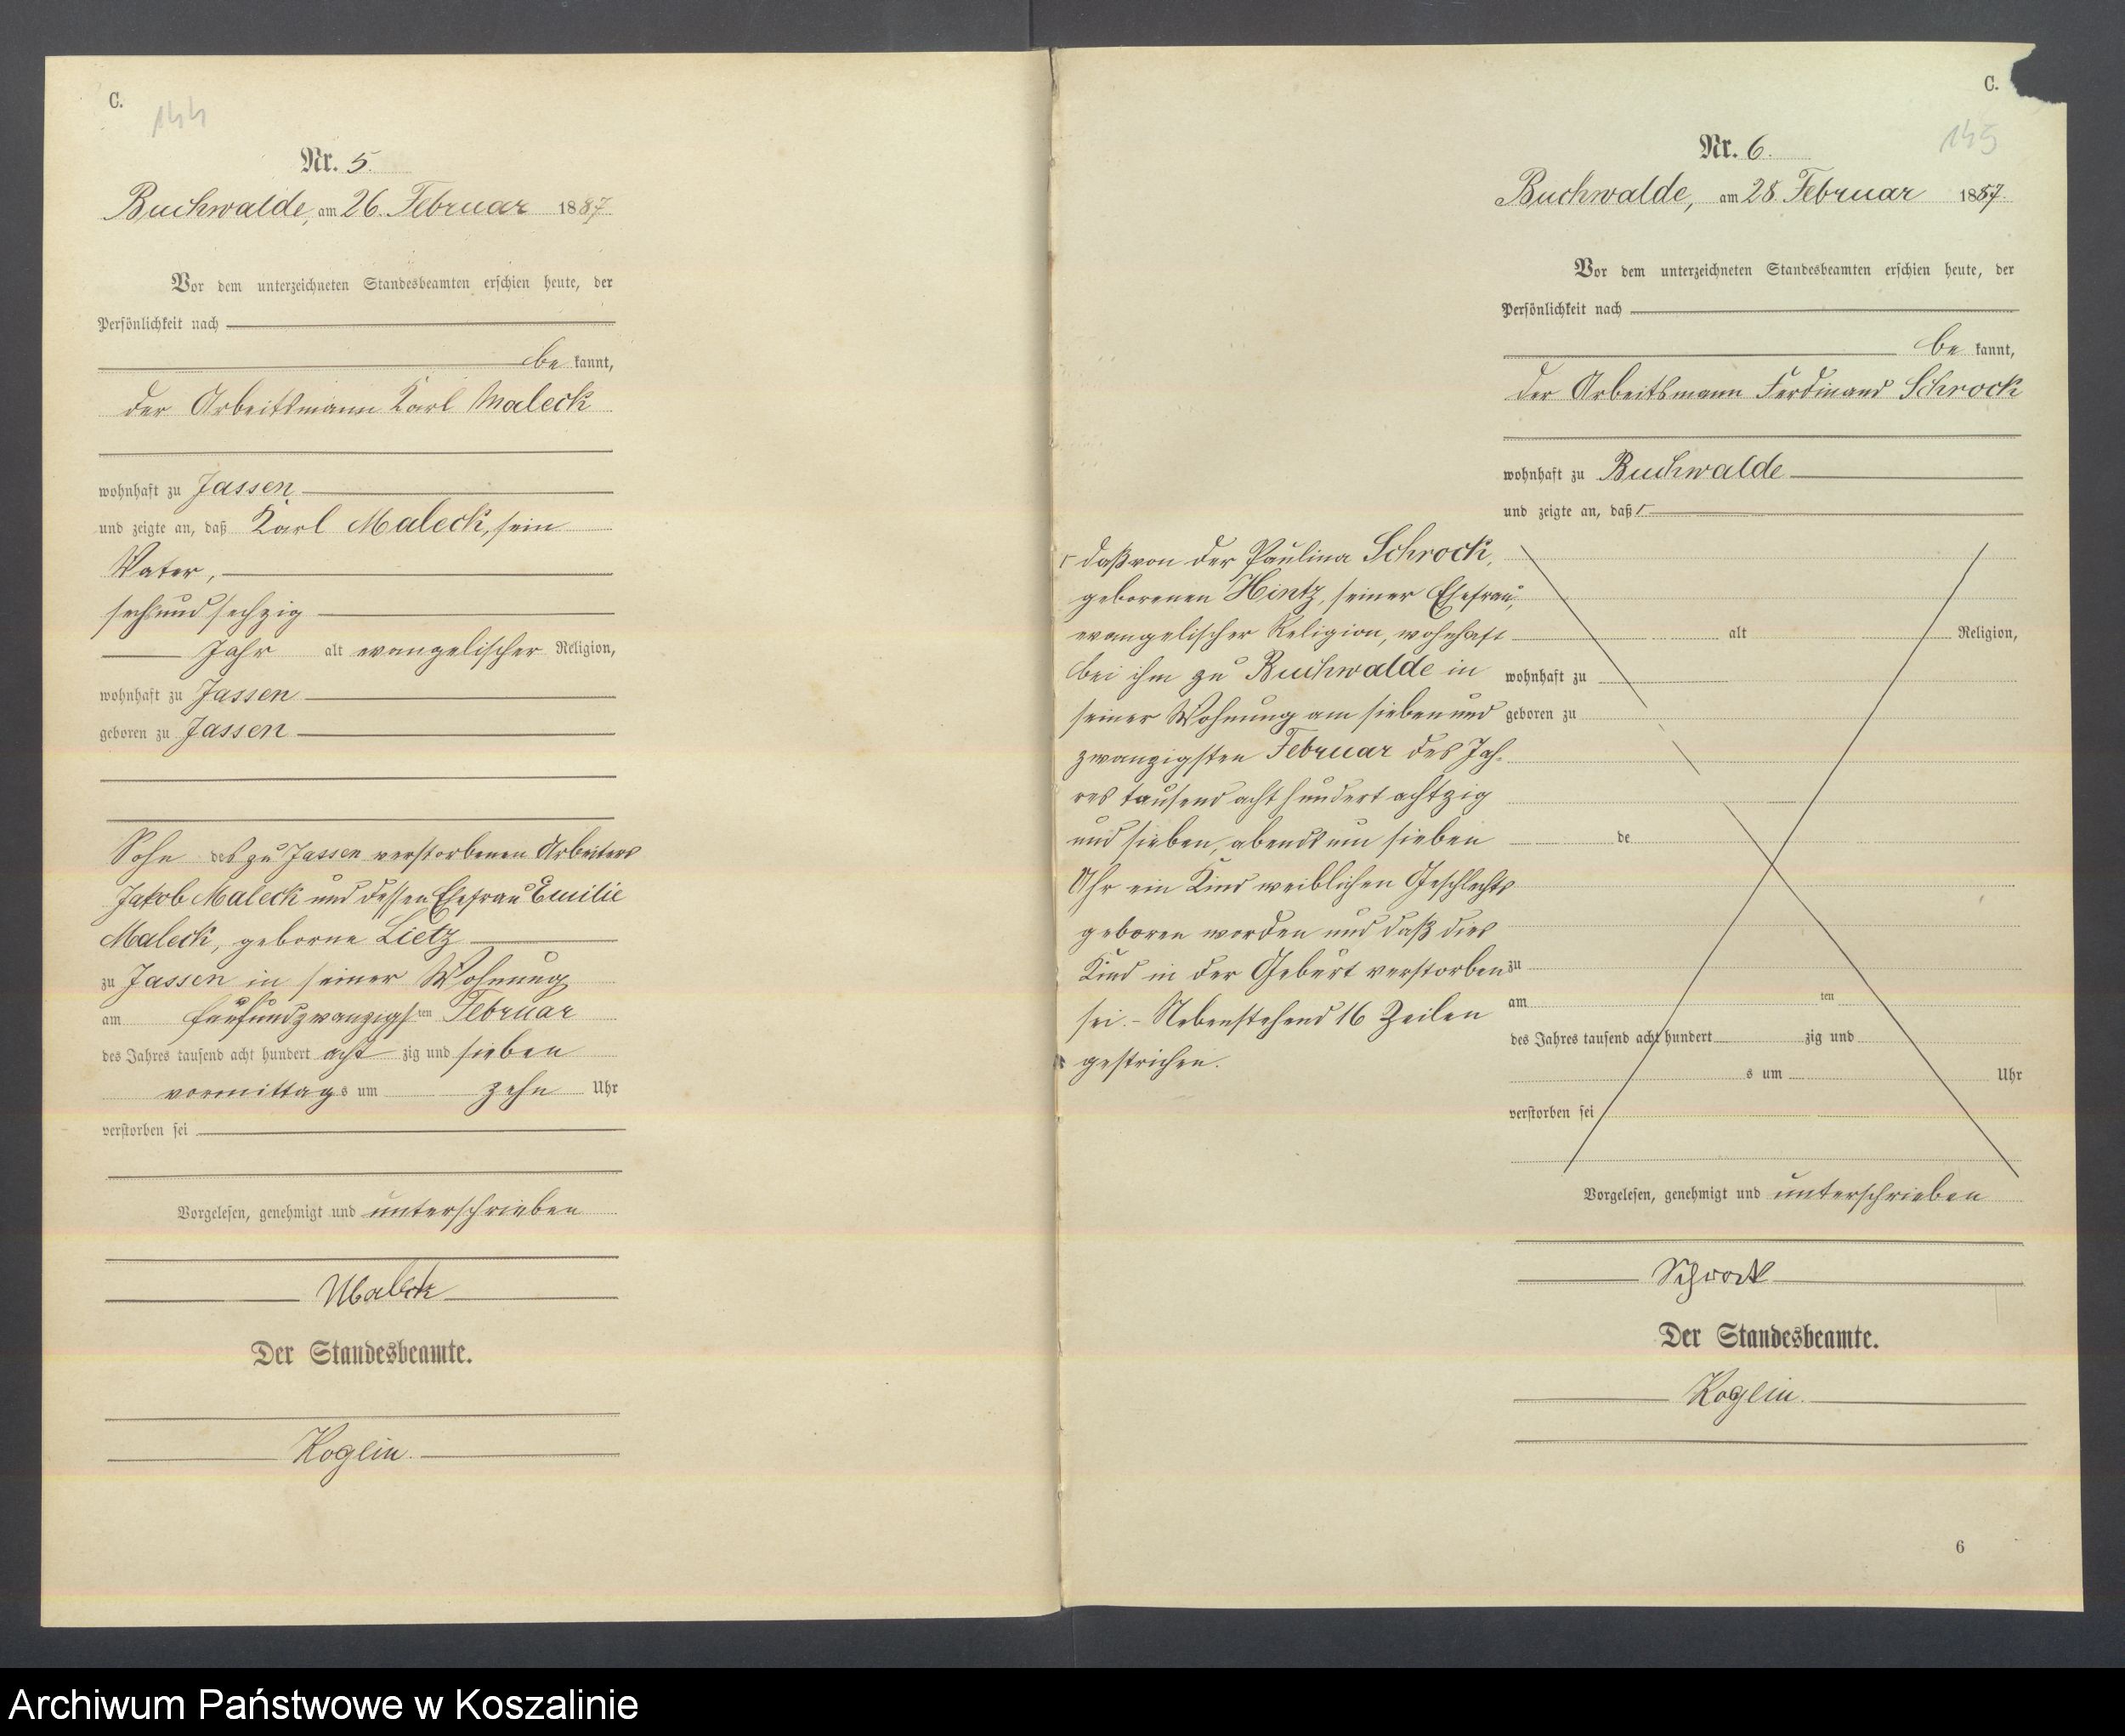 C.
144
Nr. 5.
Buchwalde, am 26. Februar 1887.
Vor dem unterzeichneten Standesbeamten erschien heute, der
Persönlichkeit nach
be kannt,
der Arbeitsmann Karl Maleck
wohnhaft zu Jassen
und zeigte an, daß Karl Maleck, sein
Vater,
sechsundsechzig
Jahr alt evangelischer Religion,
wohnhaft zu Jassen
geboren zu Jassen
Sohn des zu Jassen verstorbenen Arbeiters
Jakob Maleck und dessen Ehefrau Emilie
Maleck, geborne Lietz
zu Jassen in seiner Wohnung
am fünfundzwanzigsten Februar
des Jahres tausend acht hundert acht zig und sieben
vormittags um zehn Uhr
verstorben sei
Vorgelesen, genehmigt und unterschrieben
Maleck
Der Standesbeamte.
Koglin.
C.
145
Nr. 6.
Buchwalde, am 28. Februar 1887.
Vor dem unterzeichneten Standesbeamten erschien heute, der
Persönlichkeit nach
be kannt,
der Arbeitsmann Ferdinand Schrock
wohnhaft zu Buchwalde
und zeigte an, daß
daß von der Paulina Schrock,
geborenen Hintz, seiner Ehefrau,
evangelischer Religion, wohnhaft
bei ihm zu Buchwalde in
seiner Wohnung am siebenund
zwanzigsten Februar des Jah-
res tausend acht hundert achtzig
und sieben, abends um sieben
Uhr ein Kind weiblichen Geschlechts
geboren worden und daß dies
Kind in der Geburt verstorben
sei. - Nebenstehend 16 Zeilen
gestrichen.
alt Religion,
wohnhaft zu
geboren zu
de
zu
am ten
des Jahres tausend acht hundert zig und
s um Uhr
verstorben sei
Vorgelesen, genehmigt und unterschrieben
Schrock
Der Standesbeamte.
Koglin.
6
Archiwum Państwowe w Koszalinie